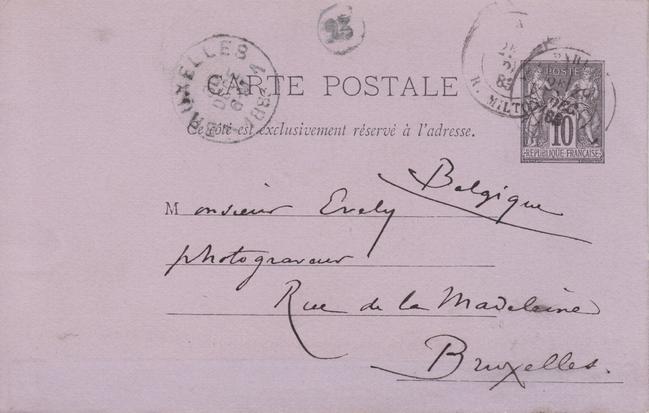 25
BRUXELLES
CARTE POSTALE
R. MILTON
Ce côté est exclusivement réservé à l'adresse.
POSTE
10
REPUBLIQUE FRANÇAISE
Belgique
Monsieur Evely
photograveur
Rue de la Madeleine
Bruxelles.